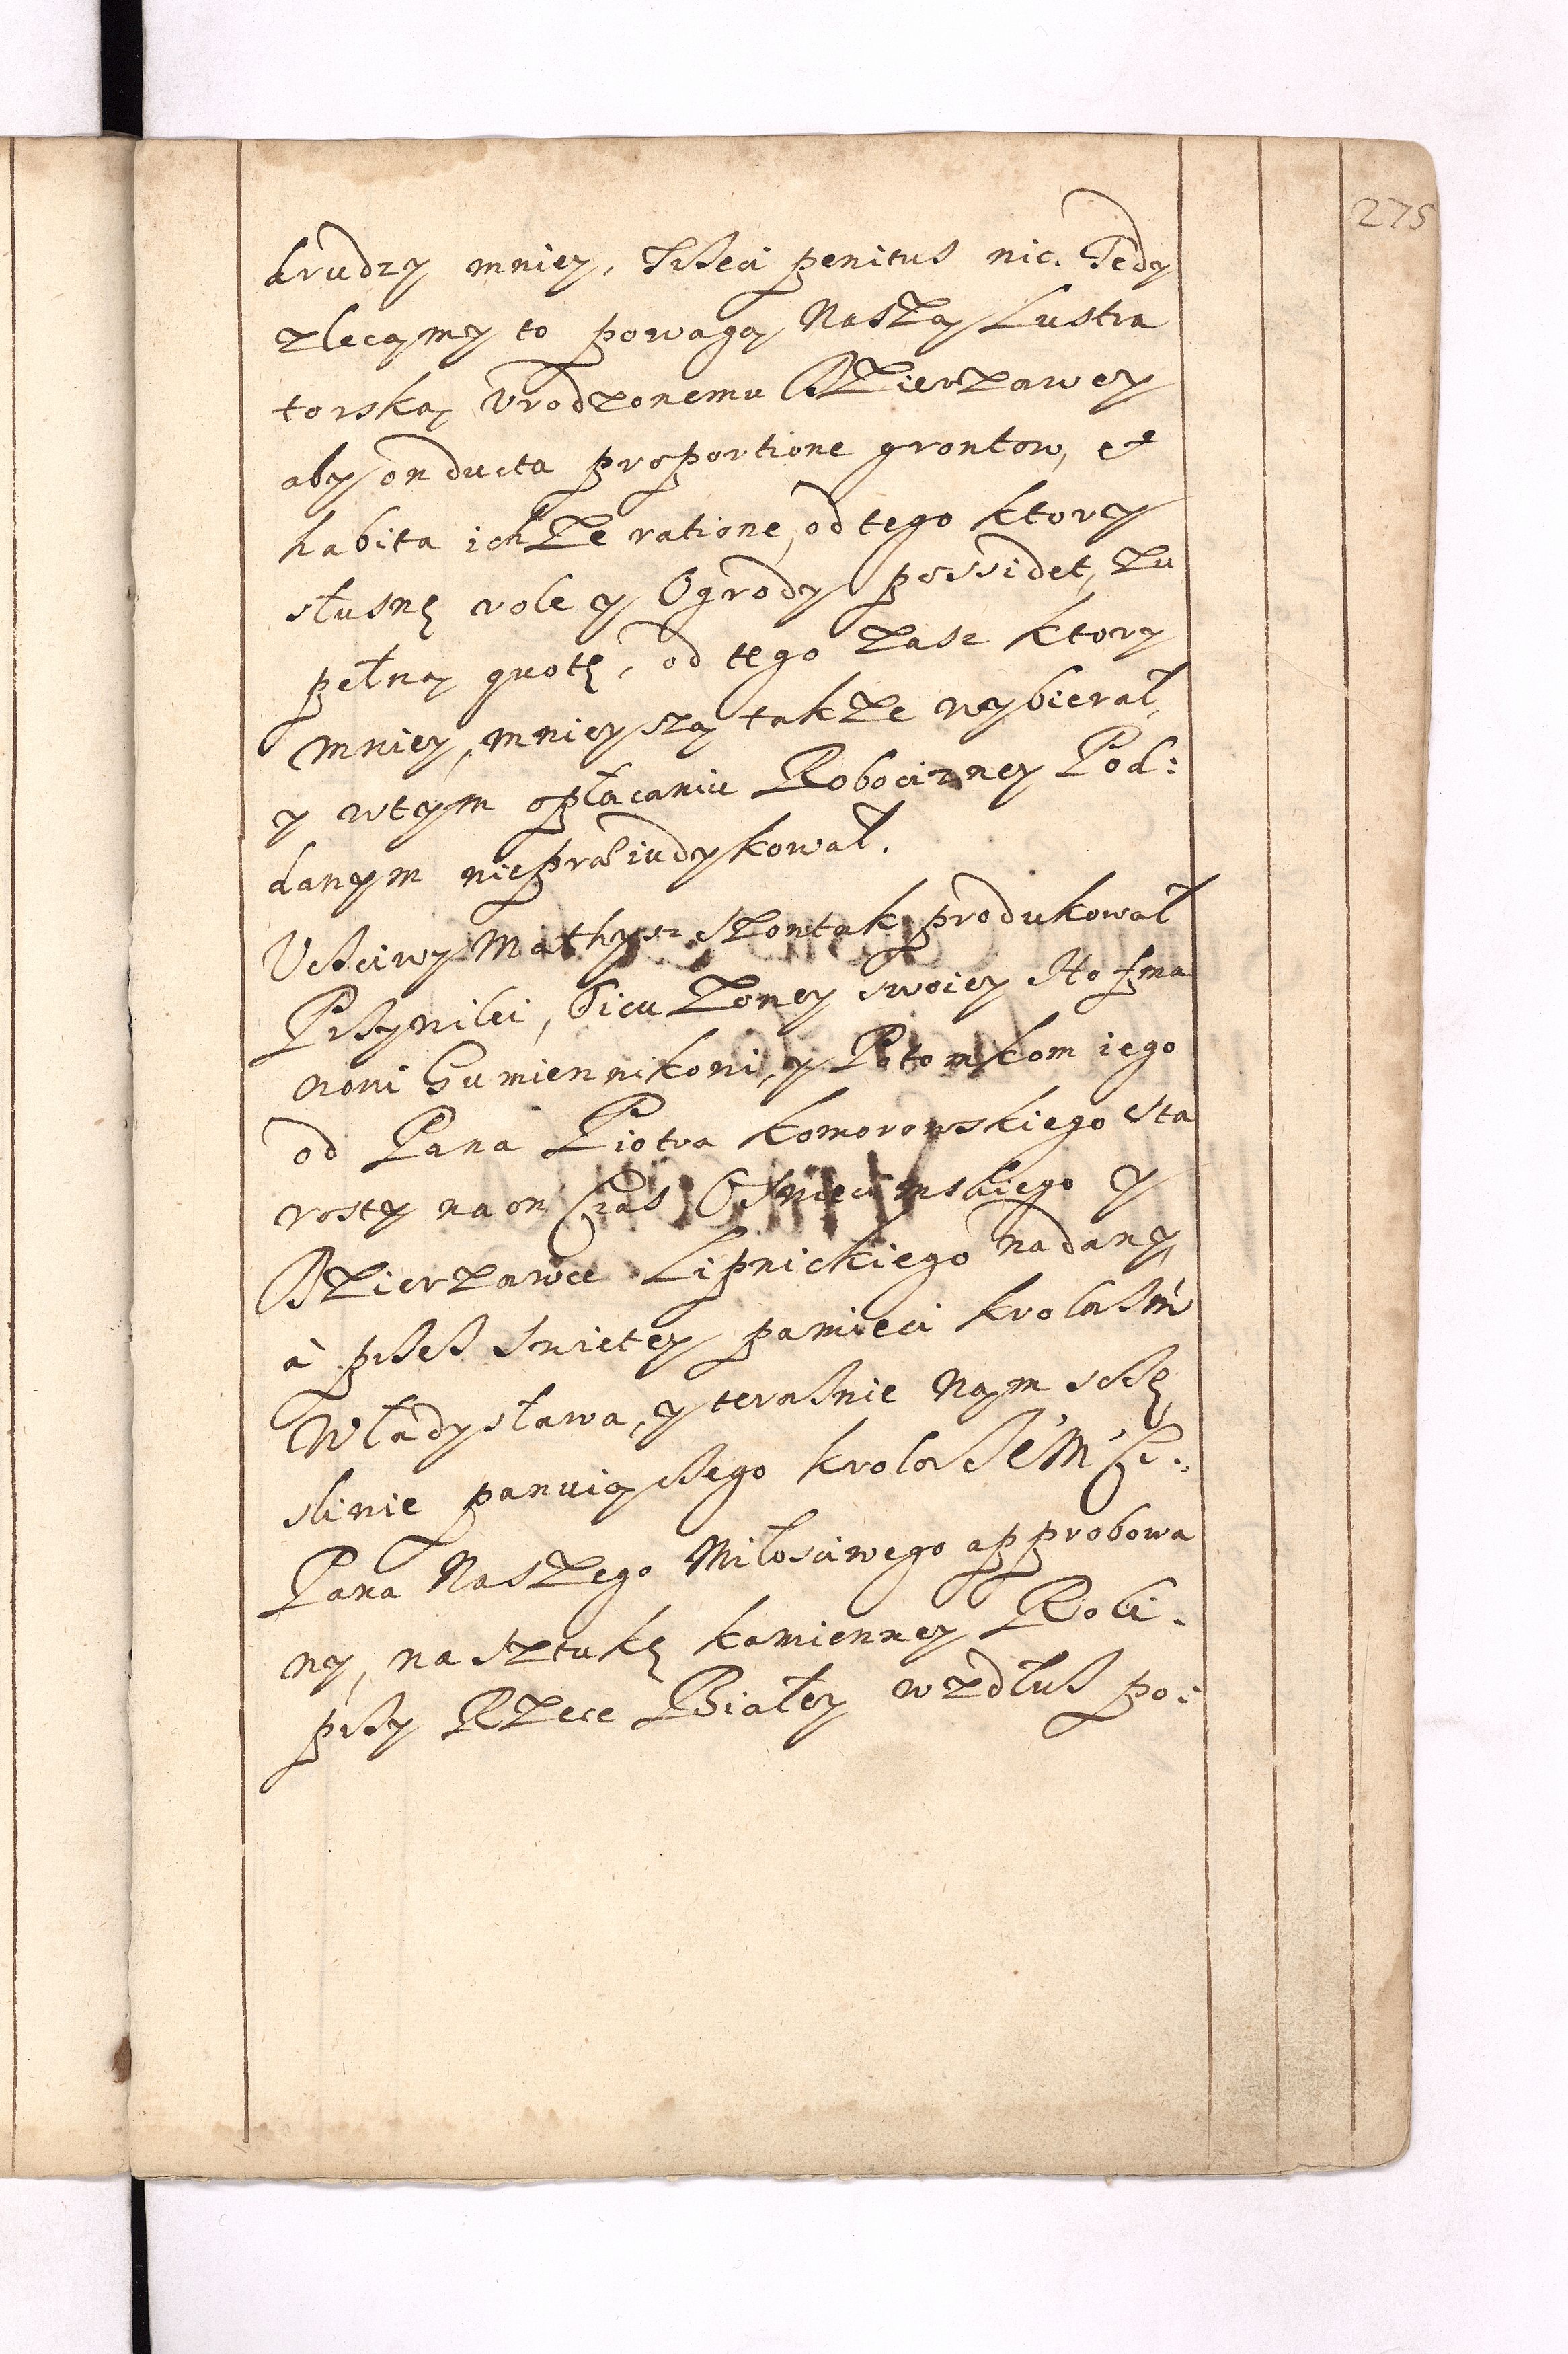 275
drudzy mniey, trzeci penitus nic. Tedy
zlecamy to powagą Naszą Lustra
torską Vrodzonemu Dzierzawcy
aby on ducta proportione grontow, et
habita ichże ratione, od tego ktory
słusnę role y Ogrody possidet, zu
pełną quotę, od tego zasz ktory
mniey, mnieyszą także wybierał,
y wtym opłacaniu Robocizney Pod:
danym niepræiudykował.
Vcziwy Mathysz Szontak produkował
Przywilei, Oicu Zoney swoiey Hofma
nowi Gumiennikowi, y Potomkom iego
od Pana Piotra Komorowskiego Sta
rosty na on czas Oswiecimskiego y
Dzierzawce Lipnickiego nadany,
à przes Swietey pamieci Krola Jm
Władysława, y terasnie Nam scze
sliwie panuiącego Krola JeM
Pana Naszego Miłosciwego approbowa
ny, na sztukę kamienney Roli.
przy Rzece Białey wzdlus po: